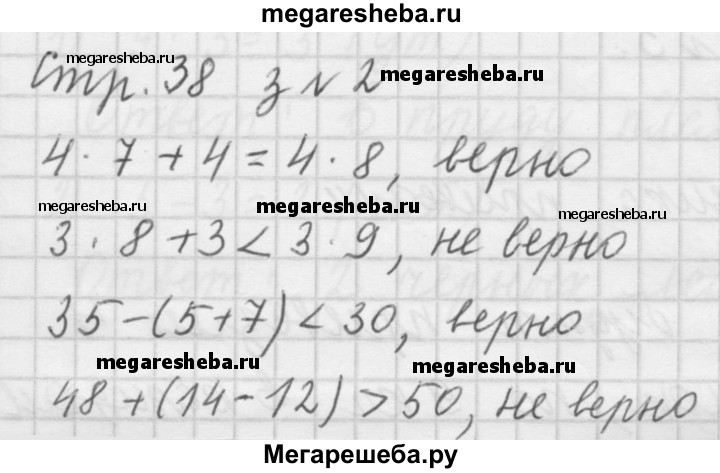 megaresheba.ru
megaresheba.ru
Стр. 38 з № 2 megaresheba.ru
4 · 7 + 4 = 4 · 8, верно
megaresheba.ru megaresheba.ru megaresheba.ru
3 · 8 + 3 < 3 · 9, не верно
35 - (5 + 7) < 30, верно
megaresheba.ru megaresheba.ru
48 + (14 - 12) > 50, не верно
Мегарешеба.ру